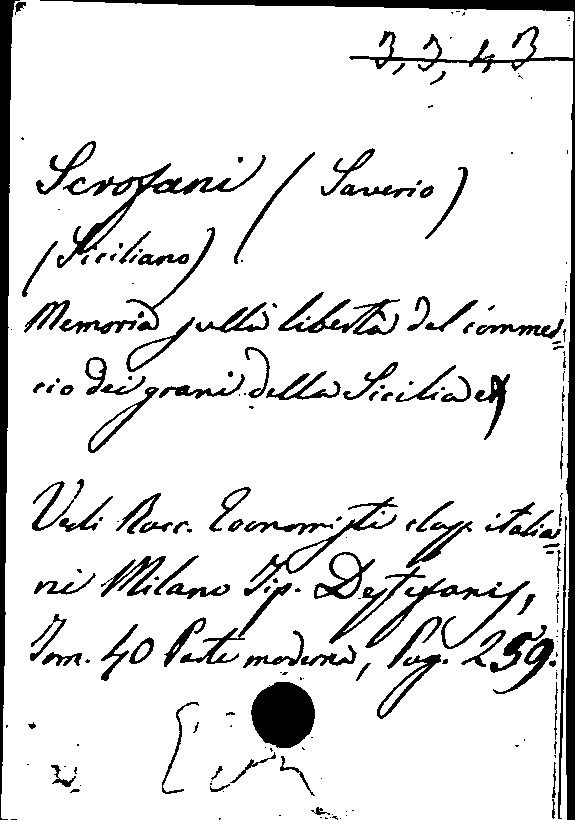 3, 3, 4, 3
Scrofani (Saverio)
(Siciliano)
Memoria sulla libertà del commer=
cio dei grani della Sicilia
Vedi Racc. Economisti class. italia=
ni Milano Tip. Destefanis,
Tom. 40 Parte moderna, Pag. 259.